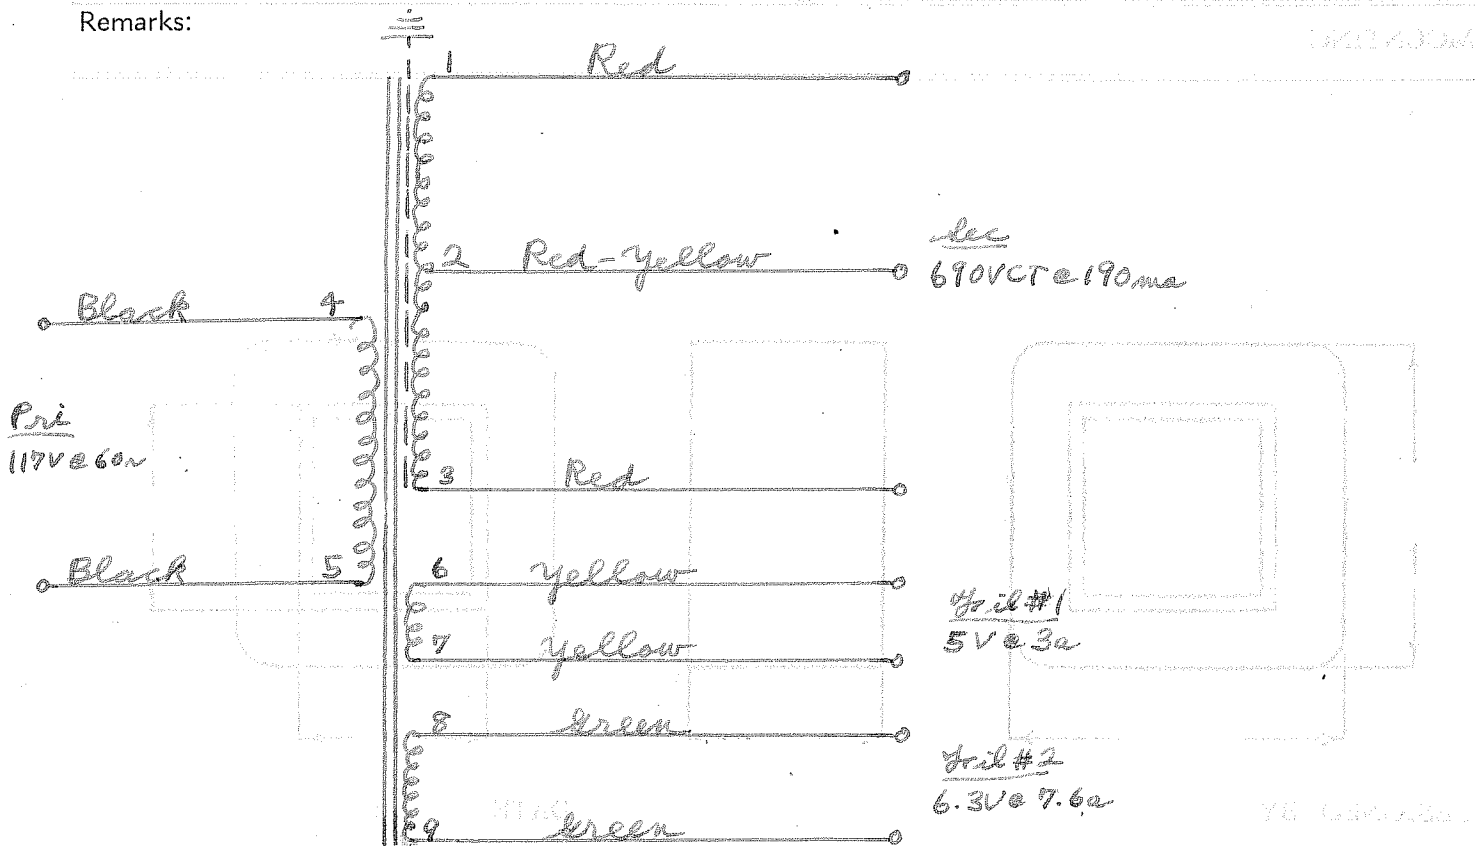 Remarks:
1 Red
2 Red-Yellow
Sec
690VCT @ 190ma
Black 4
Pri
117V @ 60~
3 Red
Black 5
6 Yellow
Fil #1
5V @ 3a
7 Yellow
8 Green
Fil #2
6.3V @ 7.6a
9 Green